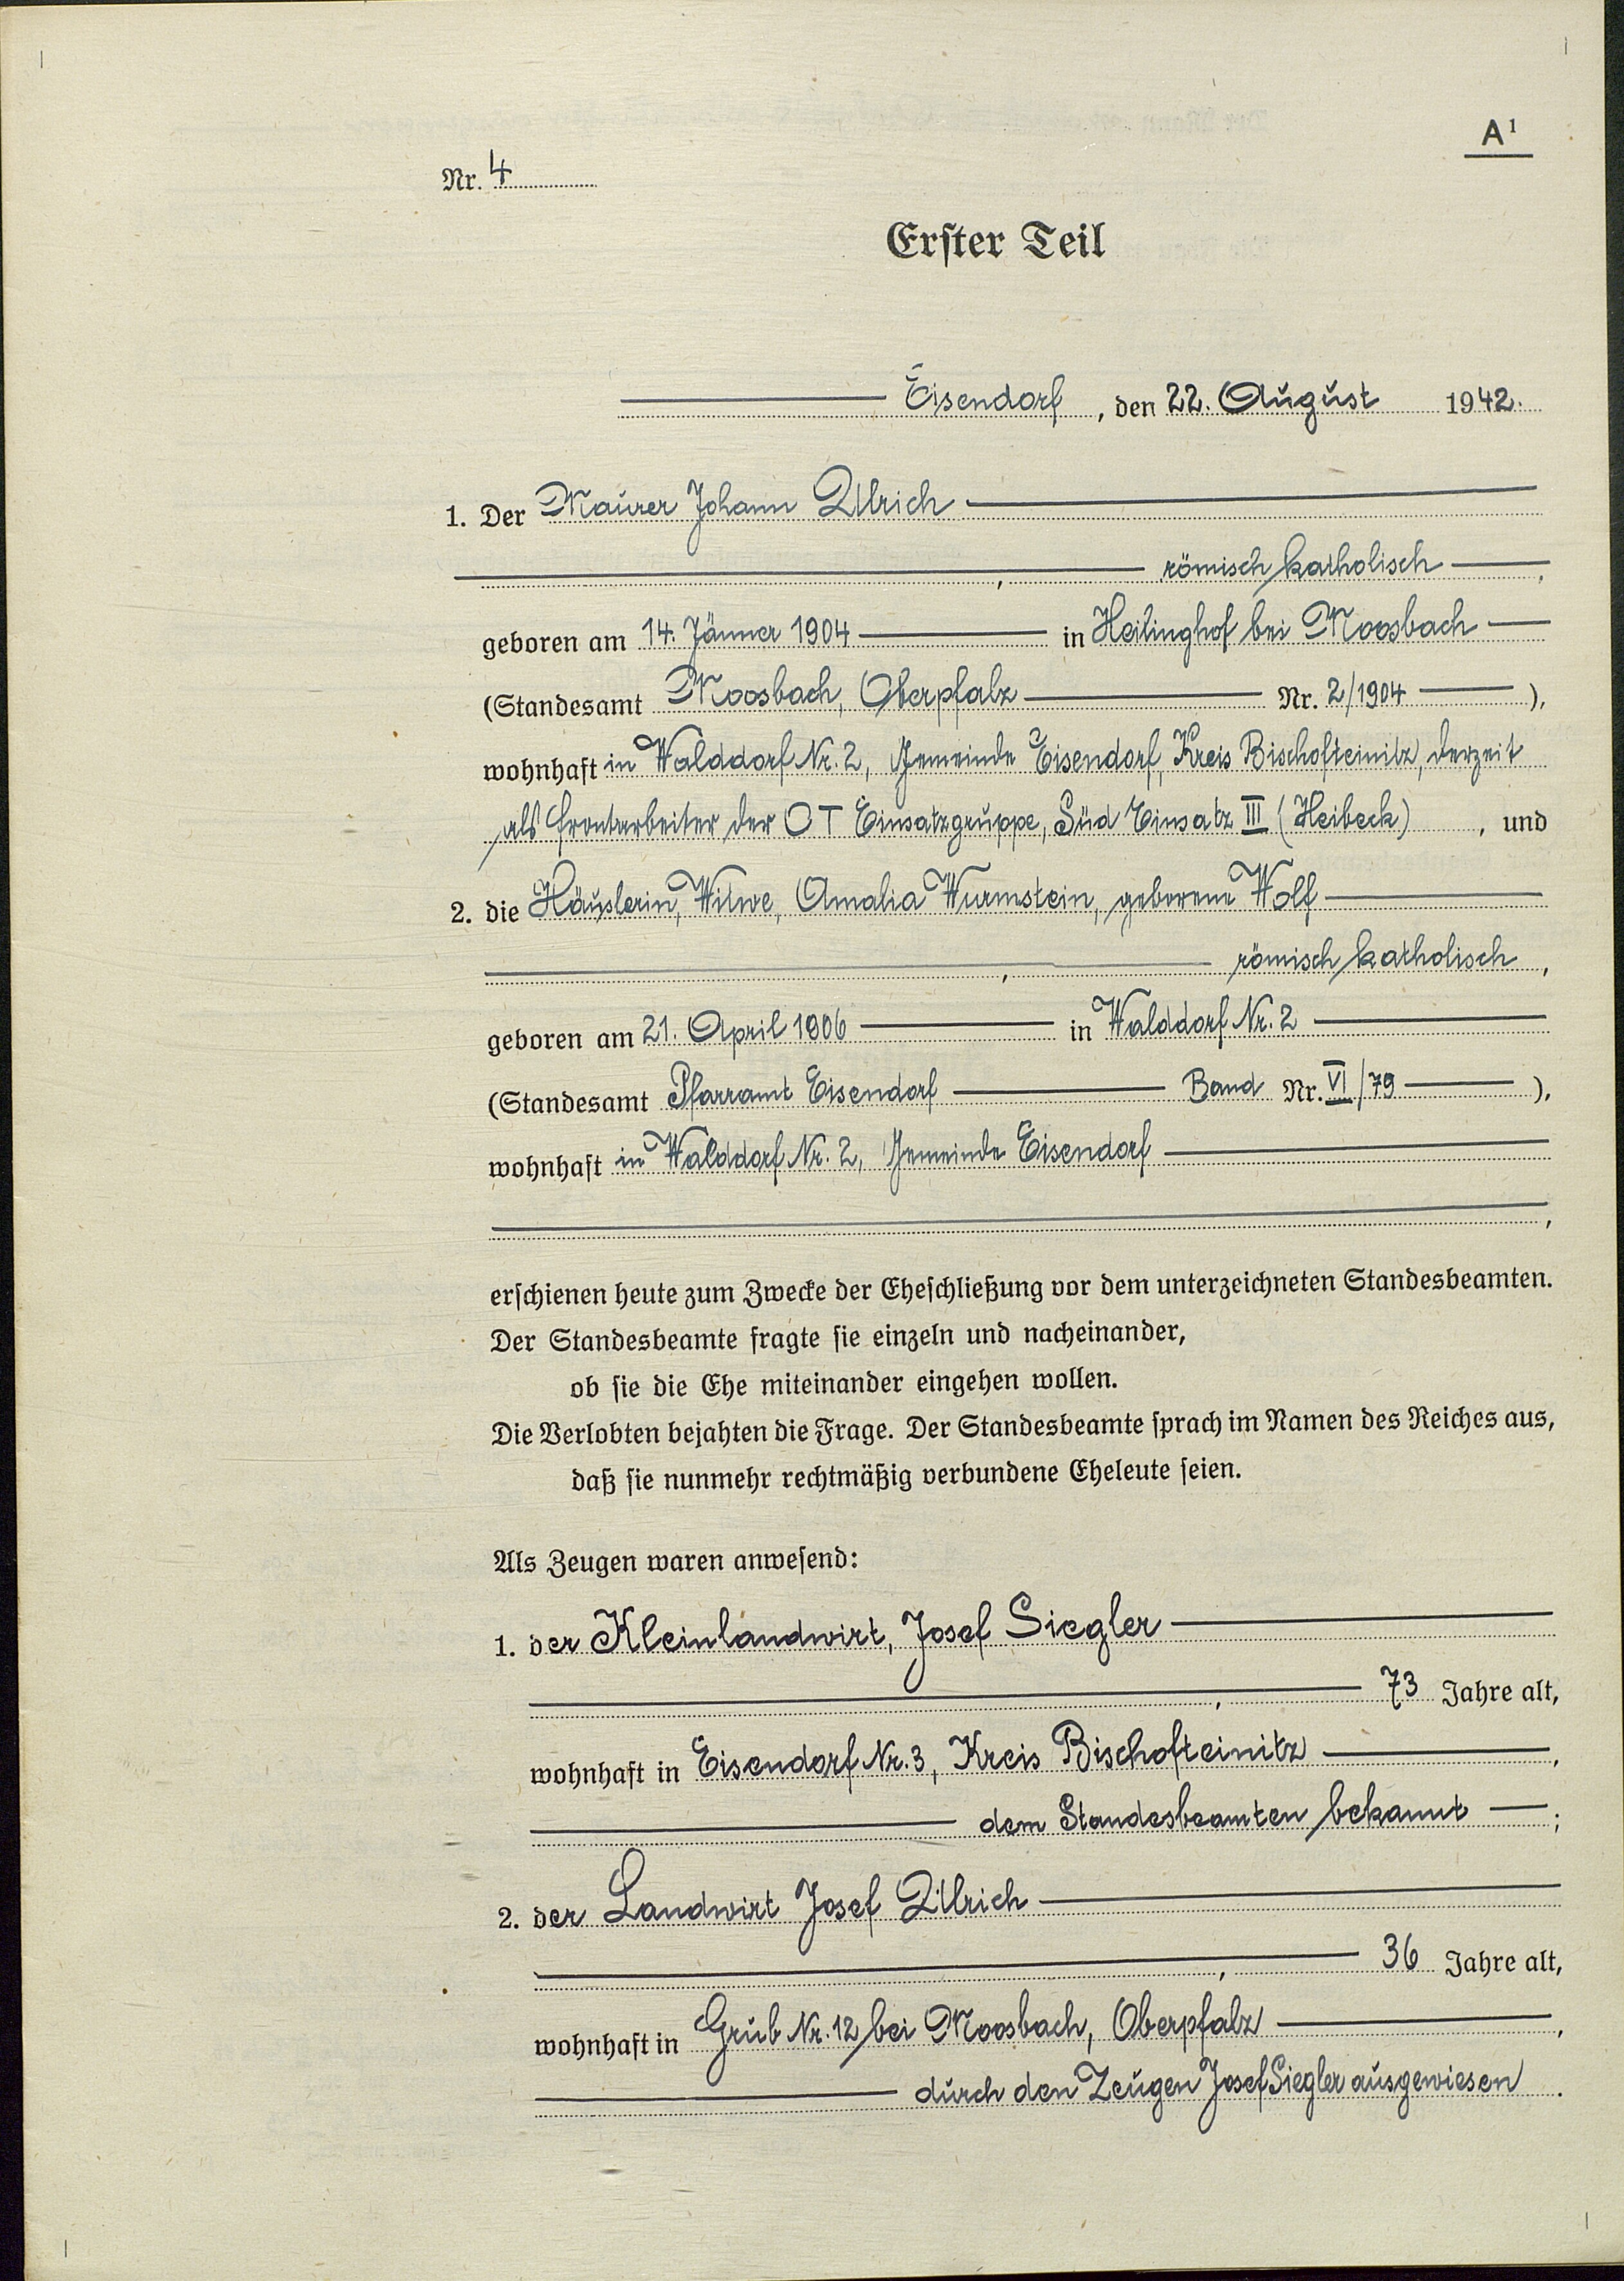 A¹
Nr. 4
Erster Teil
Eisendorf, den 22. August 1942.
1. Der Maurer Johann Ullrich
, römisch katholisch,
geboren am 14. Jänner 1904 in Heilinghof bei Moosbach
(Standesamt Moosbach, Oberpfalz Nr. 2/1904),
wohnhaft in Walddorf Nr. 2, Gemeinde Eisendorf, Kreis Bischofteinitz, derzeit
als Frontarbeiter der OT Einsatzgruppe, Süd Einsatz III (Heibeck), und
2. die Häuslerin, Witwe, Amalia Wurmstein, geborene Wolf
, römisch katholisch,
geboren am 21. April 1906 in Walddorf Nr. 2
(Standesamt Pfarramt Eisendorf Band Nr. VI/79),
wohnhaft in Walddorf Nr. 2, Gemeinde Eisendorf
,
erschienen heute zum Zwecke der Eheschließung vor dem unterzeichneten Standesbeamten.
Der Standesbeamte fragte sie einzeln und nacheinander,
ob sie die Ehe miteinander eingehen wollen.
Die Verlobten bejahten die Frage. Der Standesbeamte sprach im Namen des Reiches aus,
daß sie nunmehr rechtmäßig verbundene Eheleute seien.
Als Zeugen waren anwesend:
1. der Kleinlandwirt, Josef Siegler
, 73 Jahre alt,
wohnhaft in Eisendorf Nr. 3, Kreis Bischofteinitz,
dem Standesbeamten bekannt;
2. der Landwirt Josef Ullrich
, 36 Jahre alt,
wohnhaft in Grub Nr. 12 bei Moosbach, Oberpfalz,
durch den Zeugen Josef Siegler ausgewiesen.